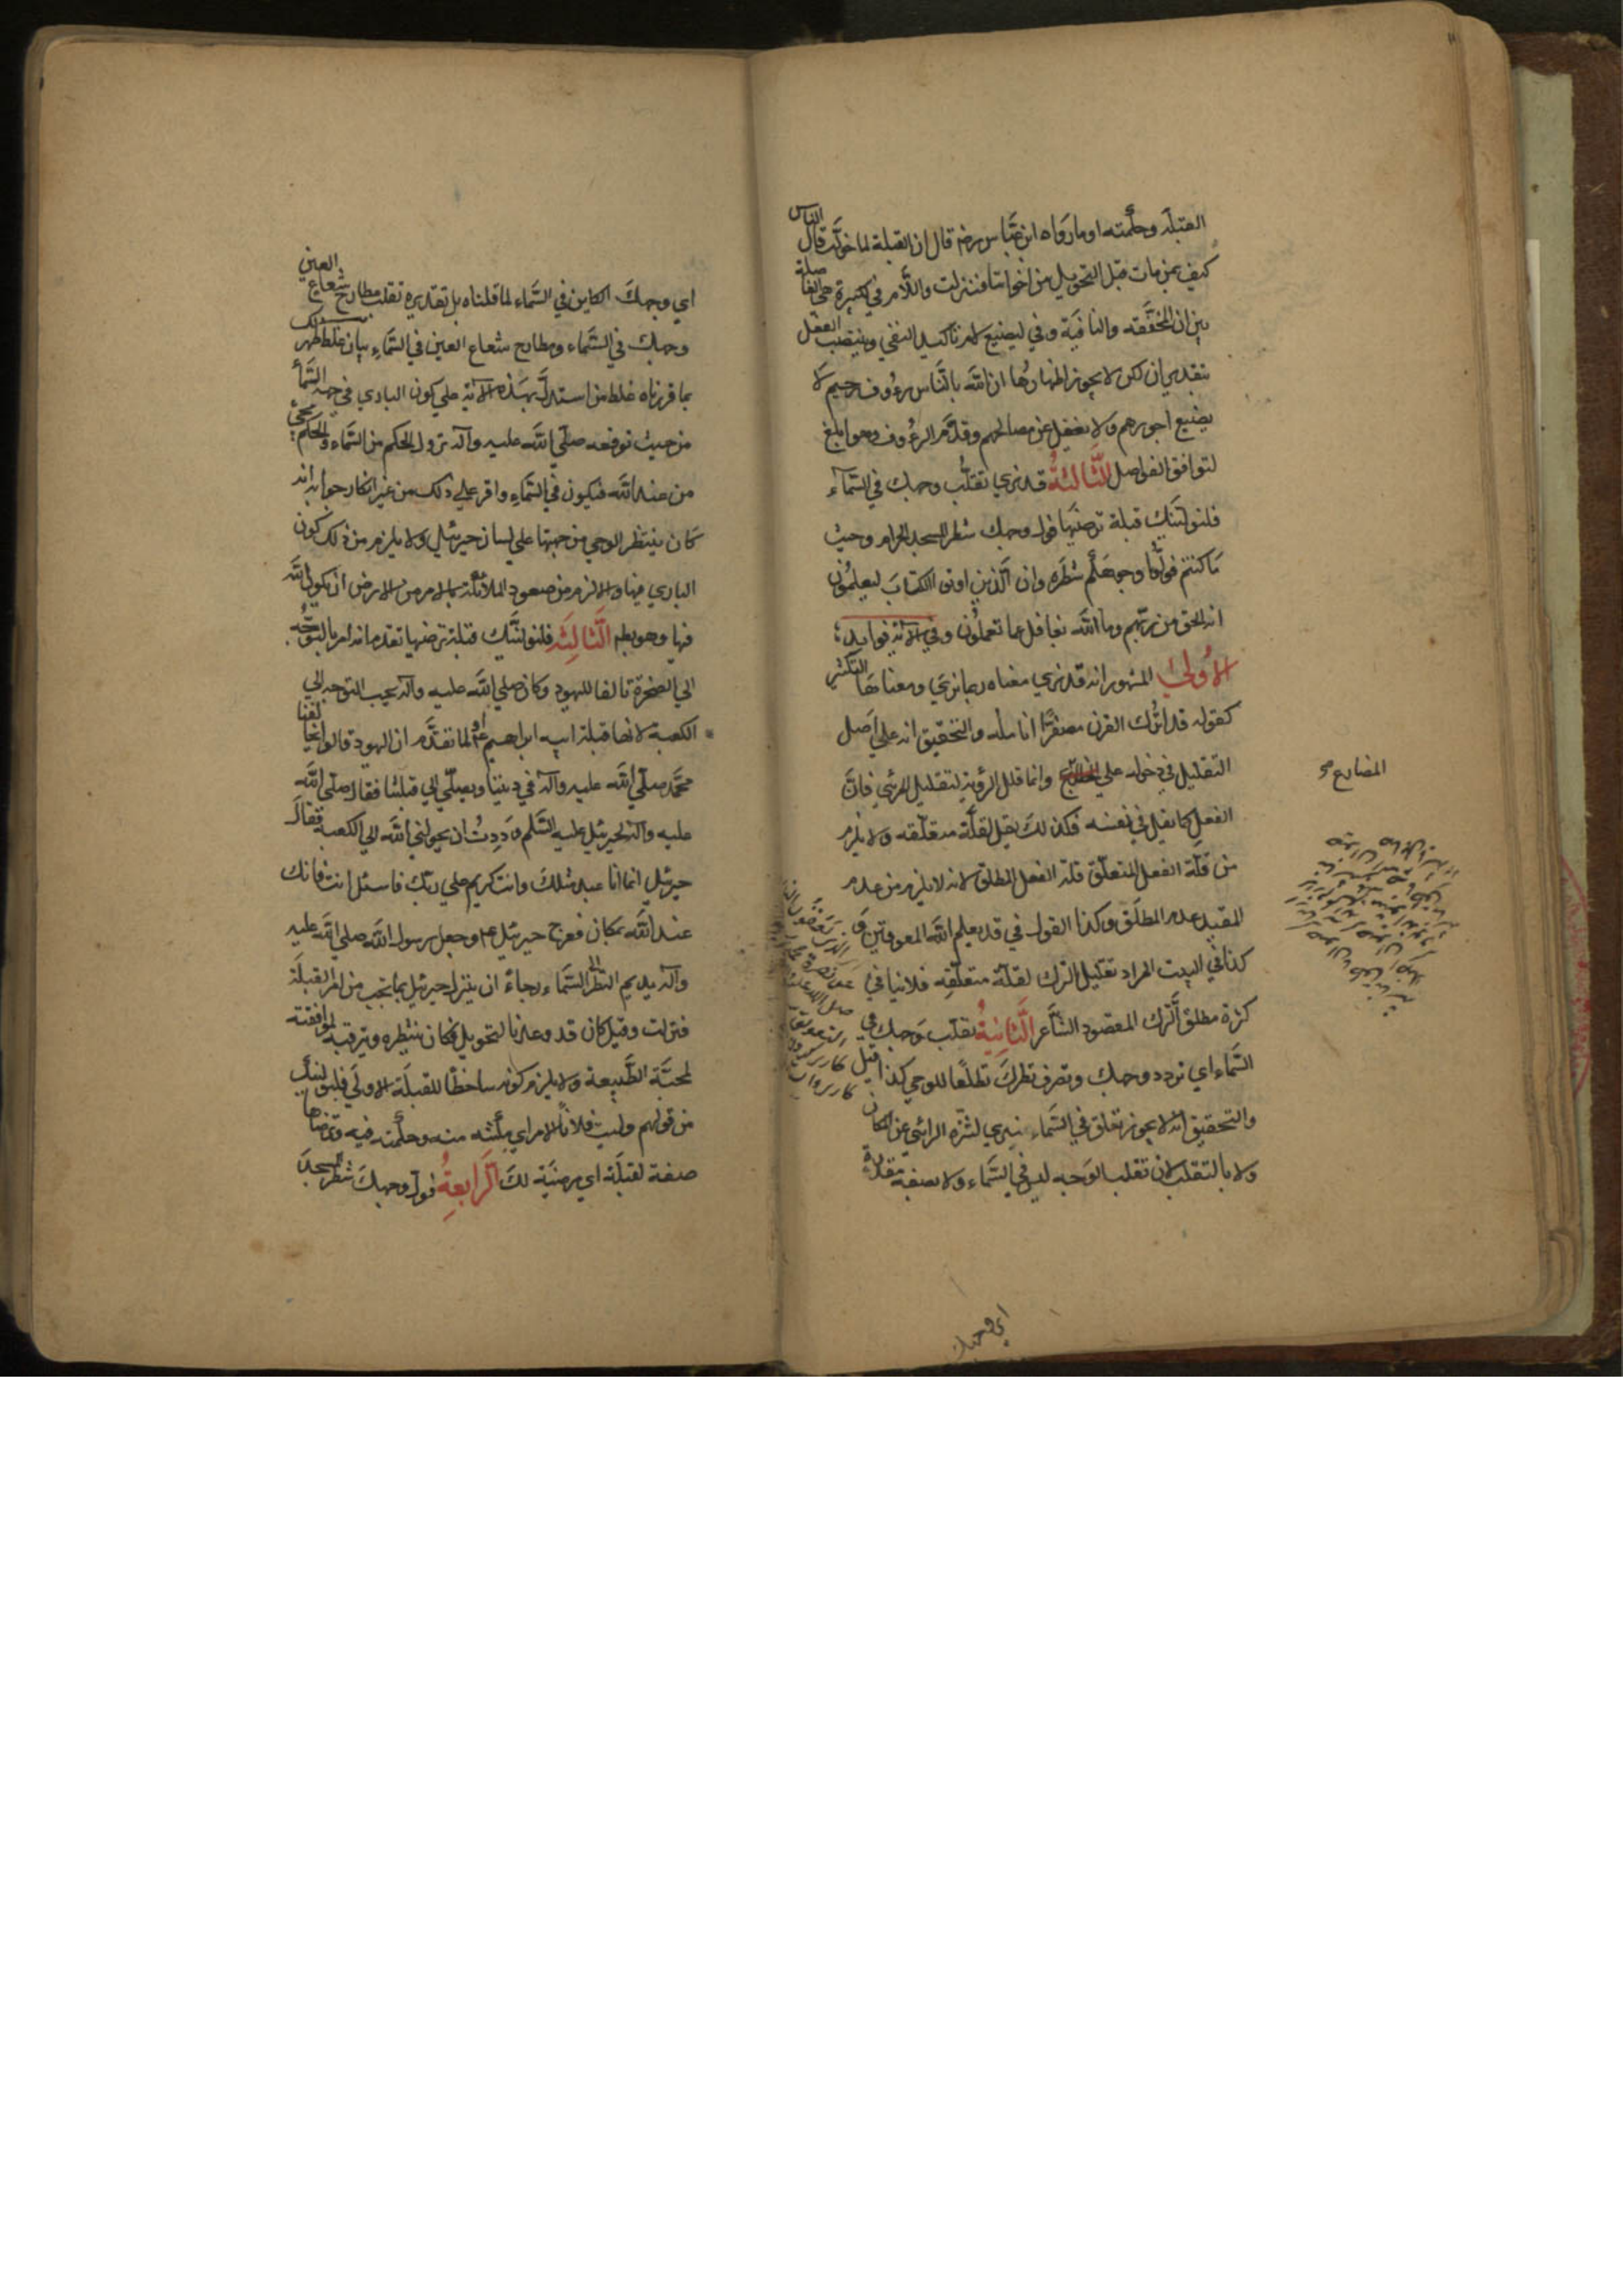 القبلة وحكمته او ما رواه ابن عباس رض قال ان القبلة لما حولت قال الناس
كيف بمن مات قبل التحويل من اخواننا فنزلت واللام في لكبيرة هي الفاصلة
بين ان المخففة والنافية وفي ليضيع لام تاكيد النفي وينتصب الفعل
بتقدير ان لكن لا يجوز اظهارها ان الله بالناس لرءوف رحيم لا
يضيع اجورهم ولا يغفل عن مصالحهم وقدم الرءوف وهو ابلغ
لتوافق الفواصل الثالثة قد نرى تقلب وجهك في السماء
فلنولينك قبلة ترضيها فول وجهك شطر المسجد الحرام وحيث
ما كنتم فولوا وجوهكم شطره وان الذين اوتوا الكتاب ليعلمون
انه الحق من ربهم وما الله بغافل عما تعملون وفي الآية فوايد
الأولى المشهور انه قد نرى معناه ربما نرى ومعناها التكثير
كقوله قد اترك القرن مصفرا انامله والتحقيق انه على اصل
التقليل في دخوله على وانما قلل الرؤية لتقليل المرئي فان
الفعل كما يقل في نفسه فكذلك يقل لقلة متعلقه ولا يلزم
من قلة الفعل المتعلق قلة الفعل المطلق لانه لا يلزم من عدم
المقيد عدم المطلق وكذا القول في قد يعلم الله المعوقين و
كذا في البيت المراد تقليل الترك لقلة متعلقه فلا ينافي
كثرة مطلق الترك المقصود الشاعر الثانية تقلب وجهك في
السماء اي تردد وجهك وتصرف نظرك تطلعا للوحي كذا قيل
والتحقيق انه لا يجوز تعلق في السماء بنرى لتنزه الرائي عن المكان
ولا بالتقلب لان تقلب الوجه ليس في السماء ولا بصفة مقدرة
المضارع
اي وجهك
اي وجهك الكاين في السماء لما قلناه بل تقديره تقلب مطارح شعاع العين
وجهك في السماء ومطارح شعاع العين في السماء بيان غلط ظهر لك
بما قررناه غلط من استدل بهذه الآية على كون الباري في جهة السماء
من حيث توقعه صلى الله عليه وآله نزول الحكم من السماء والحكم يجيء
من عند الله فيكون في السماء واقر على ذلك من غير انكار جوابه انه
كان ينتظر الوحي من جهتها على لسان جبرئيل ولا يلزم من ذلك كون
الباري فيها والا لزم من صعود الملائكة بالامر من الارض ان يكون الله
فيها وهو بط الثالثة فلنولينك قبلة ترضيها تقدم انه امر بالتوجه
الى الصخرة تالفا لليهود وكان صلى الله عليه وآله يحب التوجه الى
الكعبة لانها قبلة ابيه ابراهيم ع او لما تقدم ان اليهود قالوا يخالفنا
محمد صلى الله عليه وآله في ديننا ويصلي الى قبلتنا فقال صلى الله
عليه وآله لجبرئيل عليه السلم وددت ان يحولني الله الى الكعبة فقال
جبرئيل انما انا عبد مثلك وانت كريم على ربك فاسئل انت فانك
عند الله بمكان فعرج جبرئيل ع وجعل رسول الله صلى الله عليه
وآله يديم النظر الى السماء رجاء ان ينزل جبرئيل بما يحب من امر القبلة
فنزلت وقيل كان قد وعد بالتحويل فكان ينتظره ويترقبه لموافقته
لمحبة الطبيعة ولا يلزم كونه ساخطا للقبلة الاولى فلنولينك
من قولهم وليت فلانا الامر اي مكنته منه وحكمته فيه وترضاها
صفة لقبلة اي مرضية لك الرابعة فول وجهك شطر المسجد